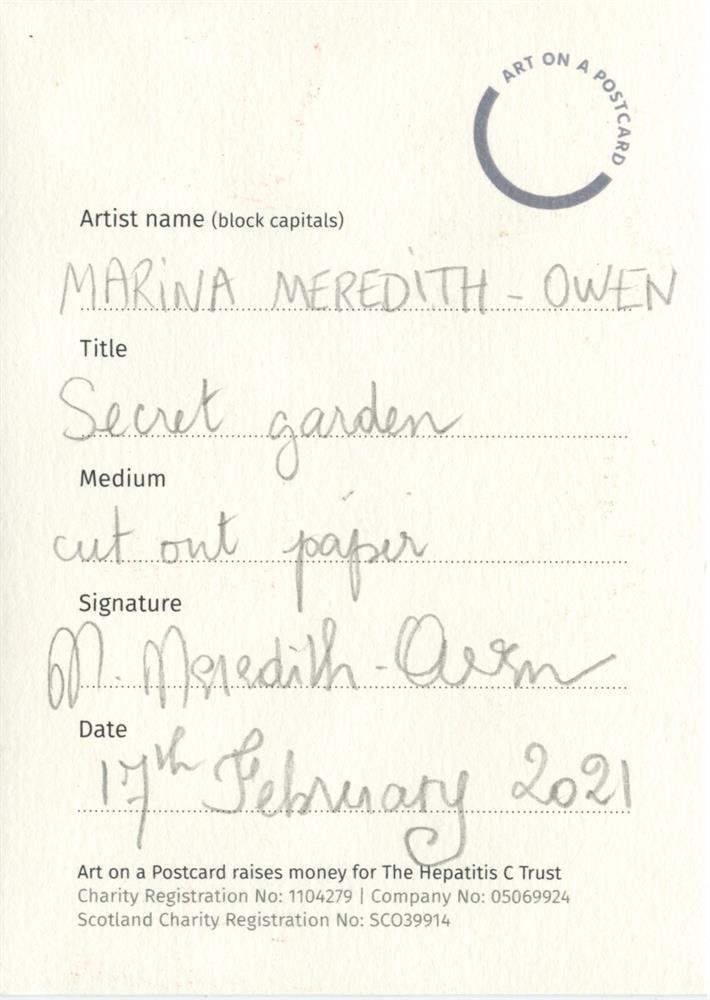 ART ON A POSTCARD
Artist name (block capitals)
MARINA MEREDITH - OWEN
Title
Secret garden
Medium
cut out paper
Signature
M. Meredith-Owen
Date
17th February 2021
Art on a Postcard raises money for The Hepatitis C Trust
Charity Registration No: 1104279 | Company No: 05069924
Scotland Charity Registration No: SCO39914